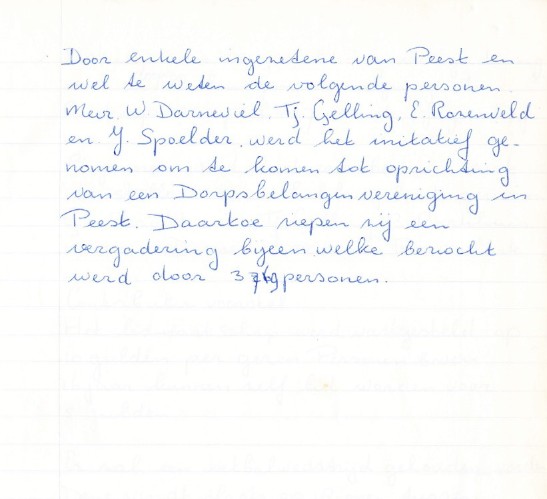 Door enkele ingezetene van Peest en
wel te weten de volgende personen.
Mevr. W. Darneviel, Tj. Gelling, E. Rozenveld
en Y. Spoelder, werd het initatief ge-
nomen om te komen tot oprichting
van een Dorpsbelangenvereniging in
Peest. Daartoe riepen zij een
vergadering byeen welke bezocht
werd door personen.